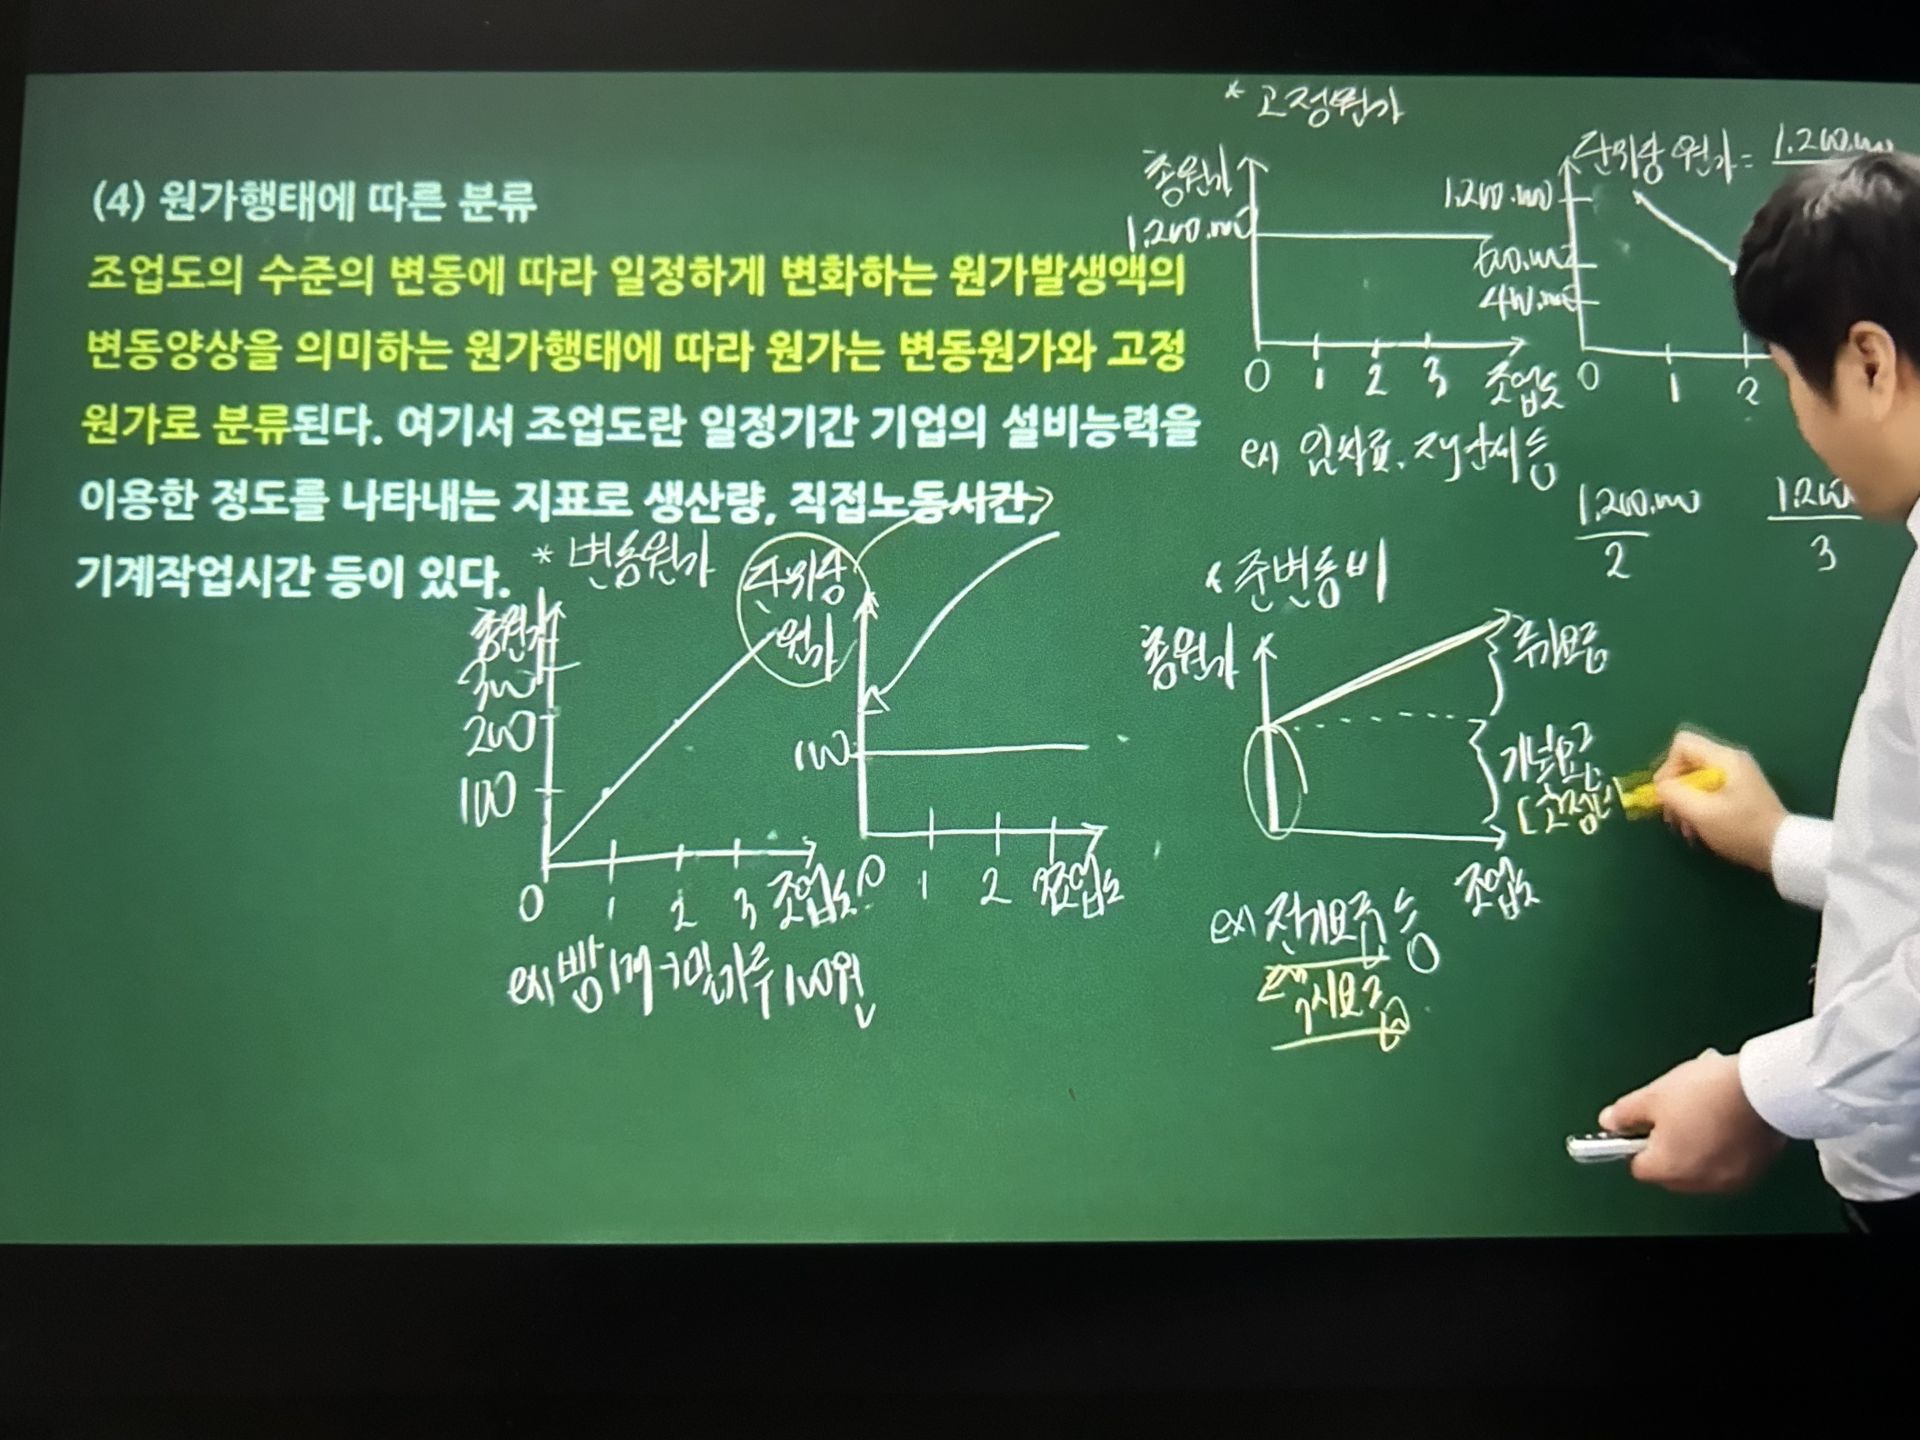 (4) 원가행태에 따른 분류
조업도의 수준의 변동에 따라 일정하게 변화하는 원가발생액의
변동양상을 의미하는 원가행태에 따라 원가는 변동원가와 고정
원가로 분류된다. 여기서 조업도란 일정기간 기업의 설비능력을
이용한 정도를 나타내는 지표로 생산량, 직접노동시간,
기계작업시간 등이 있다.
* 변동원가
총원가
300
200
100
0 1 2 3 조업도
단위당
원가
100
0 1 2 조업도
ex) 빵 1개 → 밀가루 100원
* 고정원가
총원가
1,200,000
0 1 2 3 조업도
ex) 임차료, 재산세 등
단위당 원가 = 1,200,000
1,200,000
600,000
400,000
0 1 2
1,200,000
2
1,200
3
* 준변동비
총원가
추가요금
기본요금
조업도
ex) 전기요금 등
택시요금